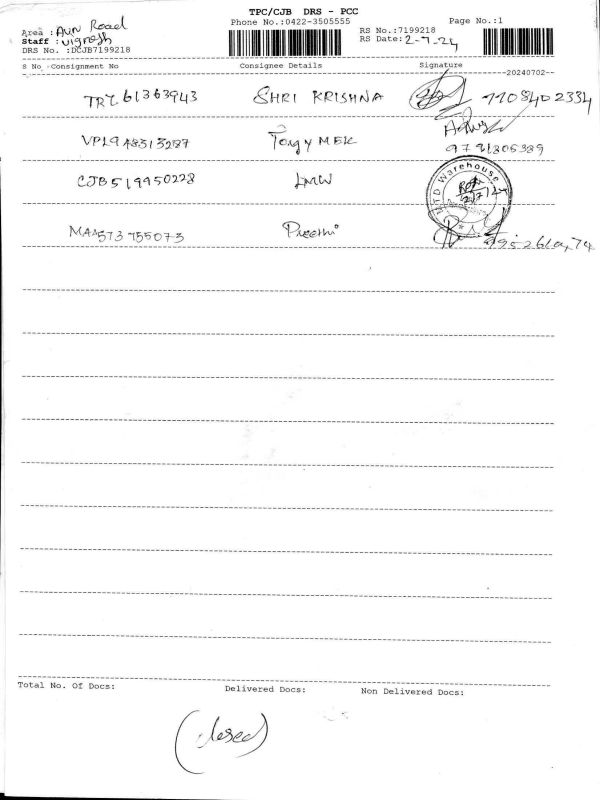 TPC/CJB DRS - PCC
Phone No.:0422-3505555 Page No.:1
Area : Avn Road
Staff : Vignesh
DRS No. :DCJB7199218
RS No.:7199218
RS Date: 2-7-24
S No -Consignment No Consignee Details Signature
--20240702--
TRZ61363943 SHRI KRISHNA 7708402334
VPL9A8313287 Torgy MEK
9791305389
CJB519950228 LMW
LTD Warehouse
MAA573755073 Preethi
Total No. Of Docs: Delivered Docs: Non Delivered Docs:
(closed)